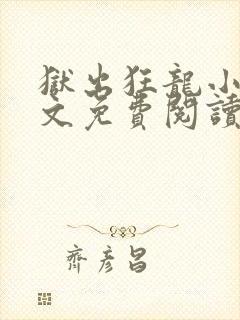 獄出狂龍小
文免費閱讀
齊彥昌